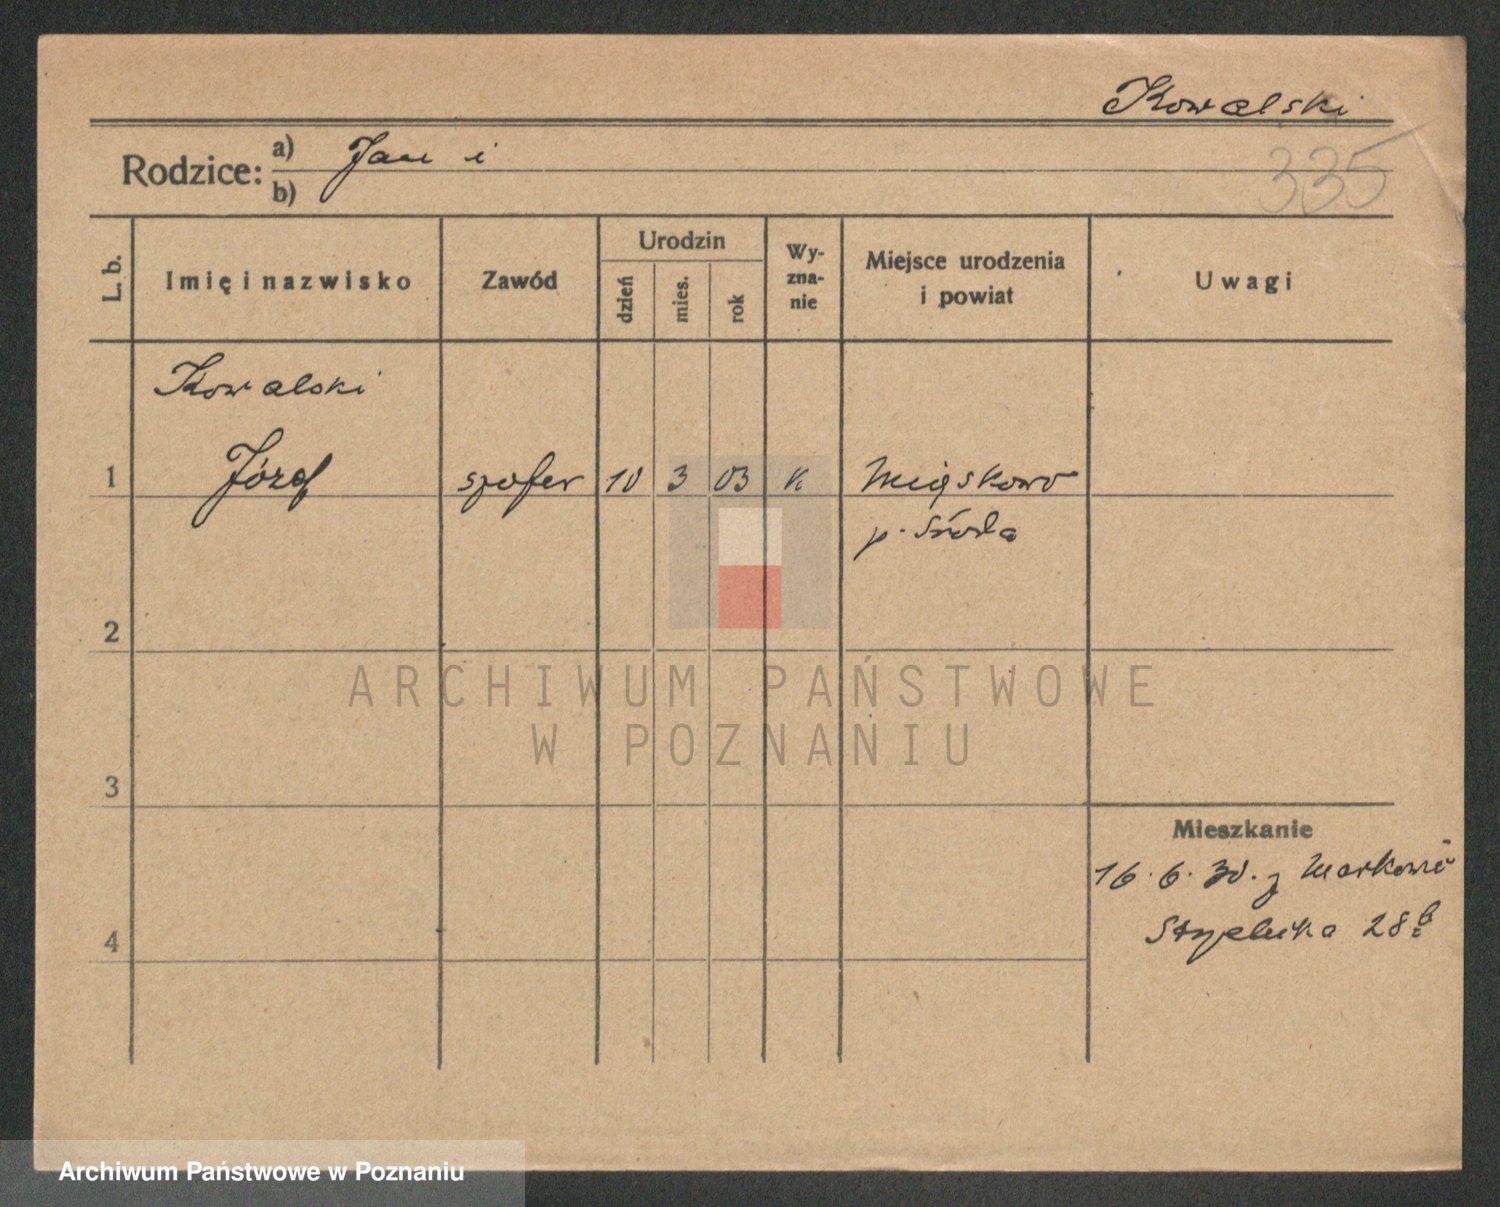 Kowalski
335
Rodzice:
a) Jan i
b)
L. b.
Imię i nazwisko
Zawód
Urodzin
dzień
mies.
rok
Wy-
zna-
nie
Miejsce urodzenia
i powiat
Uwagi
Kowalski
1 Józef szofer 10 3 03 k. Mięskowo
p. Środa
2
3
4
Mieszkanie
16. 6. 30. z
28
ARCHIWUM PAŃSTWOWE
W POZNANIU
Archiwum Państwowe w Poznaniu